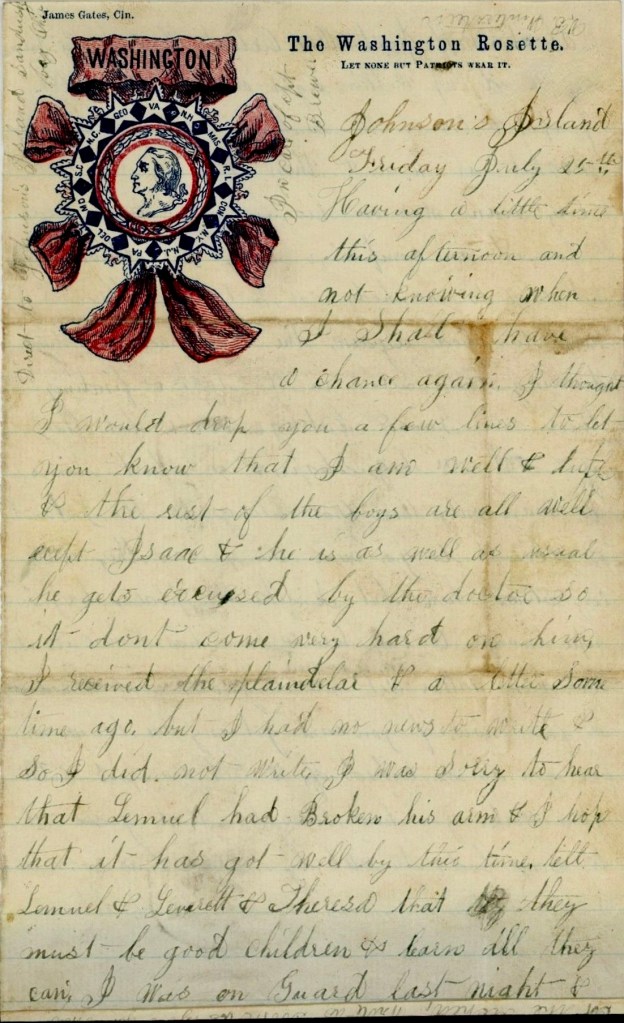 James Gates, Cin.
WASHINGTON
The Washington Rosette.
LET NONE BUT PATRIOTS WEAR IT.
VA
N.H.
MAS
R.I.
CON
N.Y.
N.J.
PA
DEL
MD
S.C.
N.C.
GEO
Direct to Johnson's Island Sandusky
In Care of Cpt
Johnson's Island
Friday July 25th
Having a little time
this afternoon and
not knowing when
I Shall have
a chance again, I thought
I would drop you a few lines to let
you know that I am well &
& the rest of the boys are all well
except Isaac & he is as well as usual
he gets excused by the doctor so
it dont come very hard on him,
I received the & a letter Some
time ago, but I had no news to write &
So I did not write, I was Sorry to hear
that Lemuel had Broken his arm & I hop
that it has got well by this time, tell
Lemuel & Leverett & Theresa that they
must be good children & learn all they
can, I was on Guard last night &